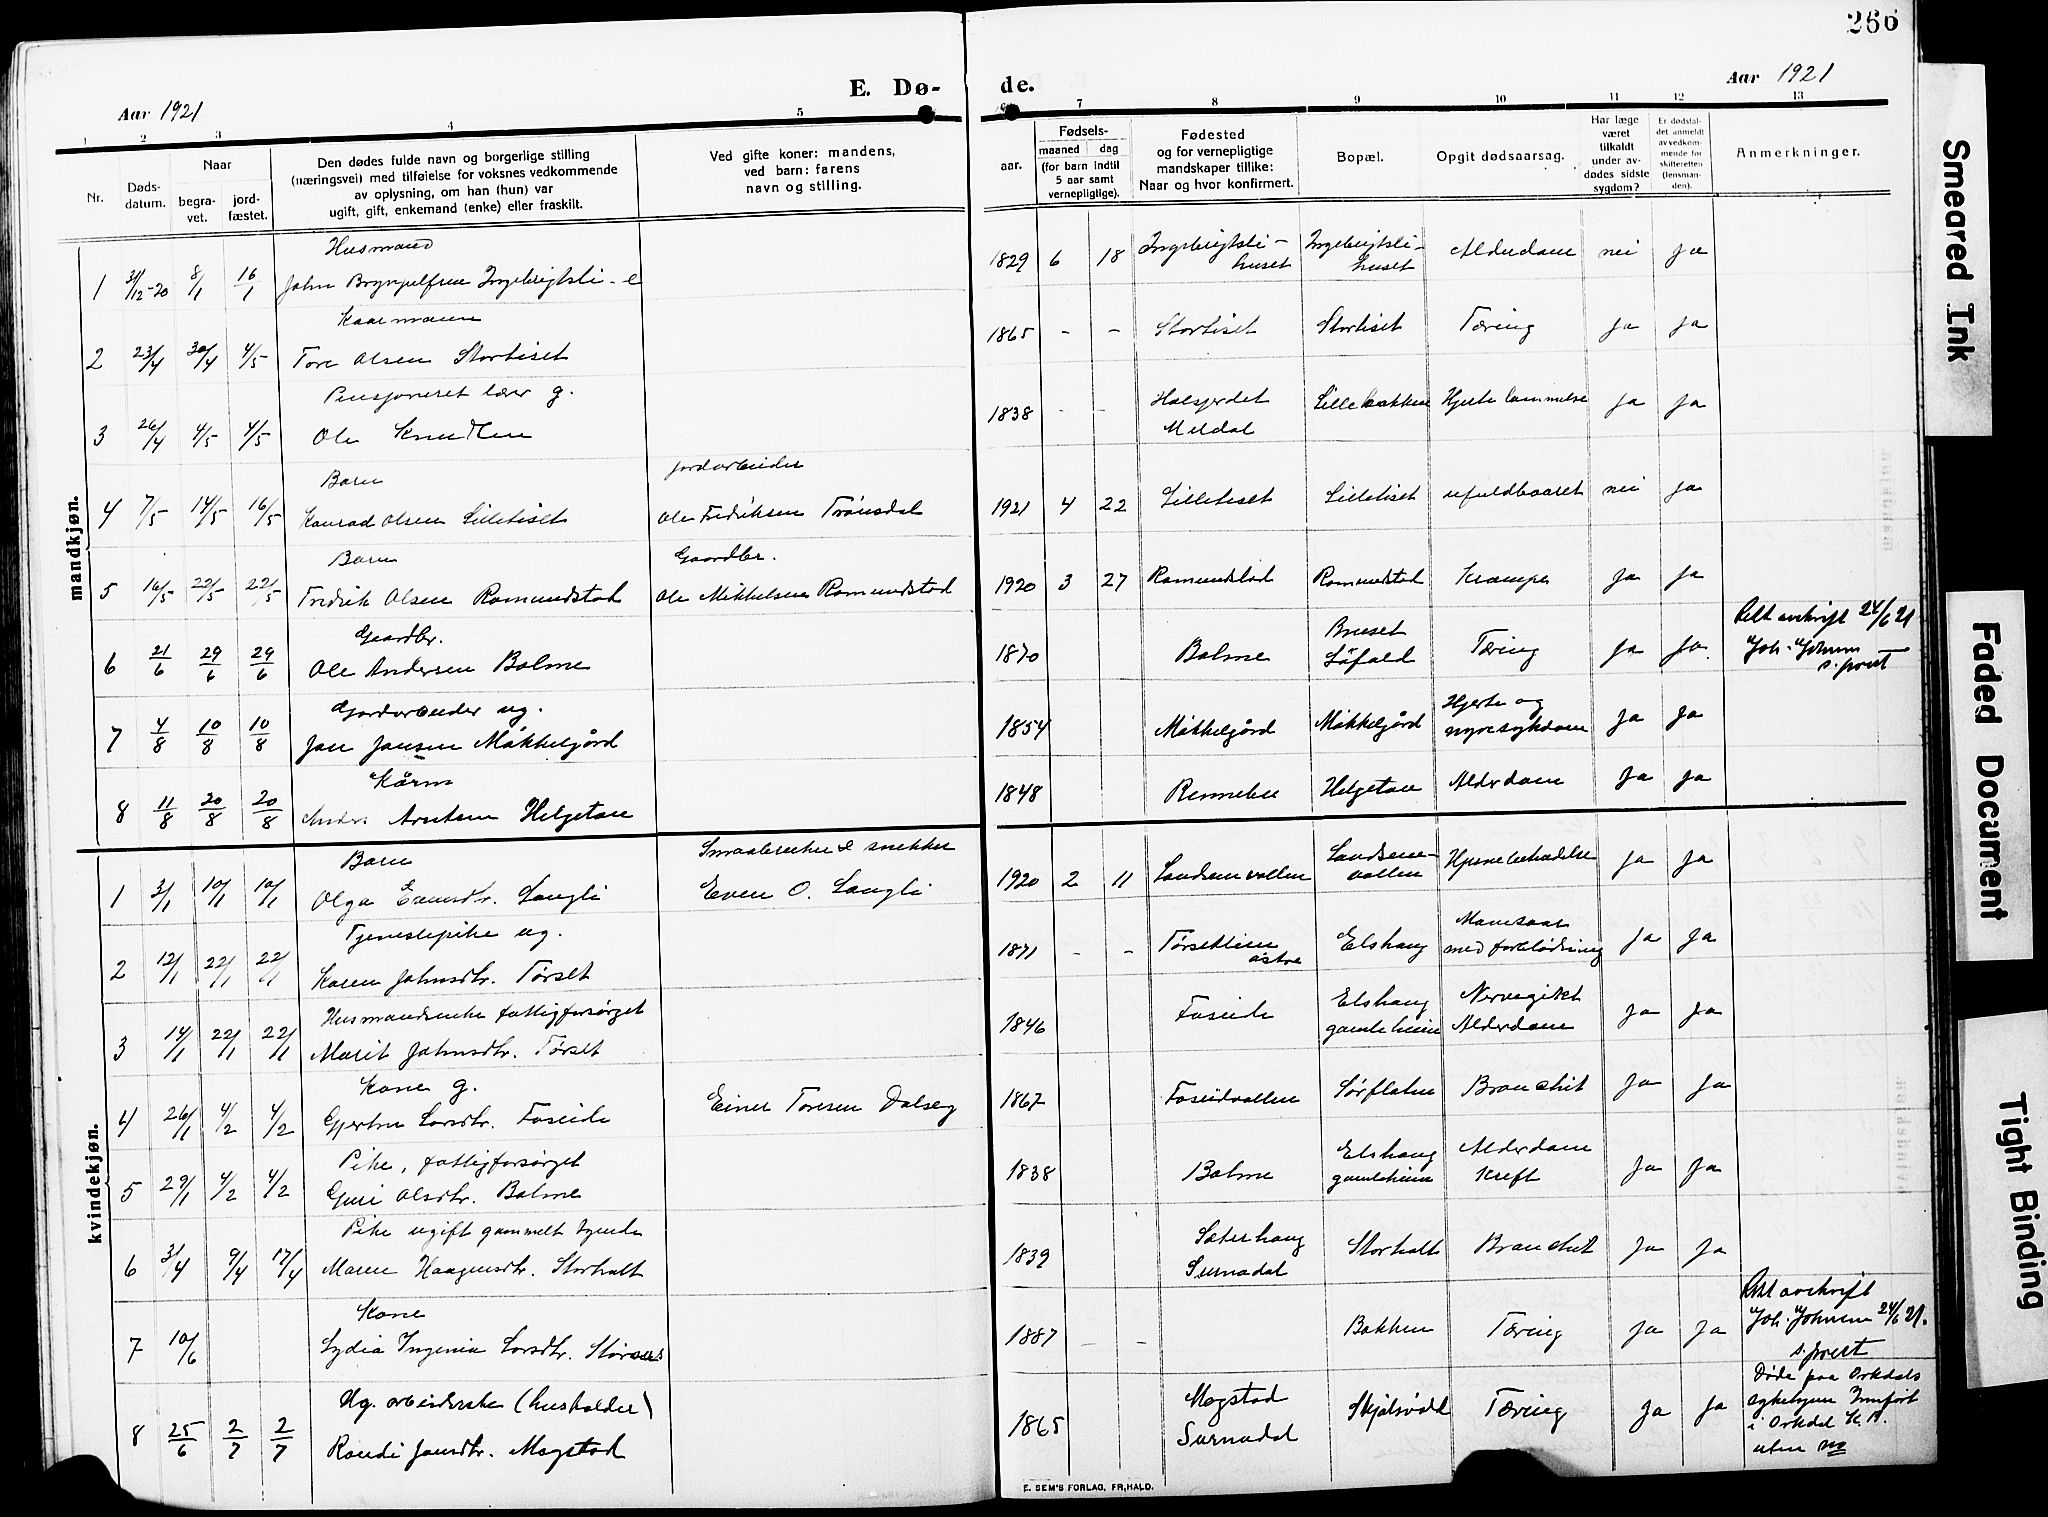 266
E. Dø-
de.
Aar 1921
Aar 1921
1 2 3 4 5
7 8 9 10 11 12 13
Nr.
Døds-
datum.
Naar
begra-
vet.
jord-
fæstet.
Den dødes fulde navn og borgerlige stilling
(næringsvei) med tilføielse for voksnes vedkommende
av oplysning, om han (hun) var
ugift, gift, enkemand (enke) eller fraskilt.
Ved gifte koner: mandens,
ved barn: farens
navn og stilling.
aar.
Fødsels-
maaned dag
(for barn indtil
5 aar samt
vernepligtige).
Fødested
og for vernepligtige
mandskaper tillike:
Naar og hvor konfirmert.
Bopæl.
Opgit dødsaarsag.
Har læge
været
tilkaldt
under av-
dødes sidste
sygdom?
Er dødsfal-
det anmeldt
av vedkom-
mende for
skifteretten
(lensman-
den).
Anmerkninger.
mandkjøn.
Husmand
1 31/12-20 8/1 16/1 John Brynjulfsen Ingebrigtsli-e 1829 6 18 Ingebrigtsli-huset Ingebrigtsli-huset Alderdom nei ja
Kaarmann
2 23/4 30/4 4/5 Tore Olsen Stortiset 1865 - - Stortiset Stortiset Tæring ja ja
Pensjoneret lærer g.
3 26/4 4/5 4/5 Ole Knudsen 1838 - - Meldal Lillebakken Hjertelammelse ja ja
Barn jordarbeider
4 7/5 14/5 16/5 Konrad Olsen Lilletiset Ole Fredriksen Trönsdal 1921 4 22 Lilletiset Lilletiset ufuldbaaret nei ja
Barn Gaardbr.
5 16/5 22/5 22/5 Fredrik Olsen Romundstad Ole Mikkelsen Romundstad 1920 3 27 Romundstad Romundstad Krampe ja ja
Gaardbr.
6 21/6 29/6 29/6 Ole Andersen Bolme 1870 Bolme Bruset Löfald Tæring ja ja. Rett avskrift 24/6 21
Joh. Johnsen
s. prest
Gardarbeider ug.
7 4/8 10/8 10/8 Jon Jonsen Mikkelgård 1854 Mikkelgård Mikkelgård Hjerte og nyresykdom ja ja
Kårm
8 11/8 20/8 20/8 Anders Arntsen Helgetun 1848 Helgetun Alderdom ja ja
kvindekjøn.
Barn Smaabruker & snekker
1 3/1 10/1 10/1 Olga Evensdtr. Langli Even O. Langli 1920 2 11 Landsemvollen Landsem-vollen Hjernebetændelse ja ja
Tjenestepike ug.
2 12/1 22/1 22/1 Karen Johnsdtr. Tørset 1871 - - østre Elshaug Mavesaar med forblødning ja ja
Husmandsenke fattigforsørget
3 14/1 22/1 22/1 Marit Johnsdtr. Tørset 1846 Foseide Elshaug gamleheim Nervegikt Alderdom ja ja
Kone g.
4 26/1 4/2 4/2 Gjertru Larsdtr. Foseide Einer Toresen Dalseg 1867 Foseidvollen Sørfloten Bronchit ja ja
Pike, fattigforsørget
5 29/1 4/2 4/2 Guri Olsdtr. Bolme 1838 Bolme Elshaug gamleheim Alderdom Kreft ja ja
Pike ugift gammelt tyende
6 31/4 9/4 17/4 Maren Haagensdtr. Storholt 1839 Sæterhaug Surnadal Storholt Bronchit ja ja
Kone
7 10/6 Lydia Ingenia Larsdtr. 1887 - - Bakken Tæring ja ja Rett avskrift
Joh. Johnsen 24/6 21.
s. prest
Ug. arbeiderske (husholder)
8 25/6 2/7 2/7 Randi Jonsdtr. Mogstad 1865 Mogstad Surnadal Skjølsvold Tæring ja ja Døde paa Orkdals
sykehjem Innført
i Orkdal K.B.
uten no
E. SEM'S FORLAG, FR,HALD.
Smeared Ink
Faded Document
Tight Binding